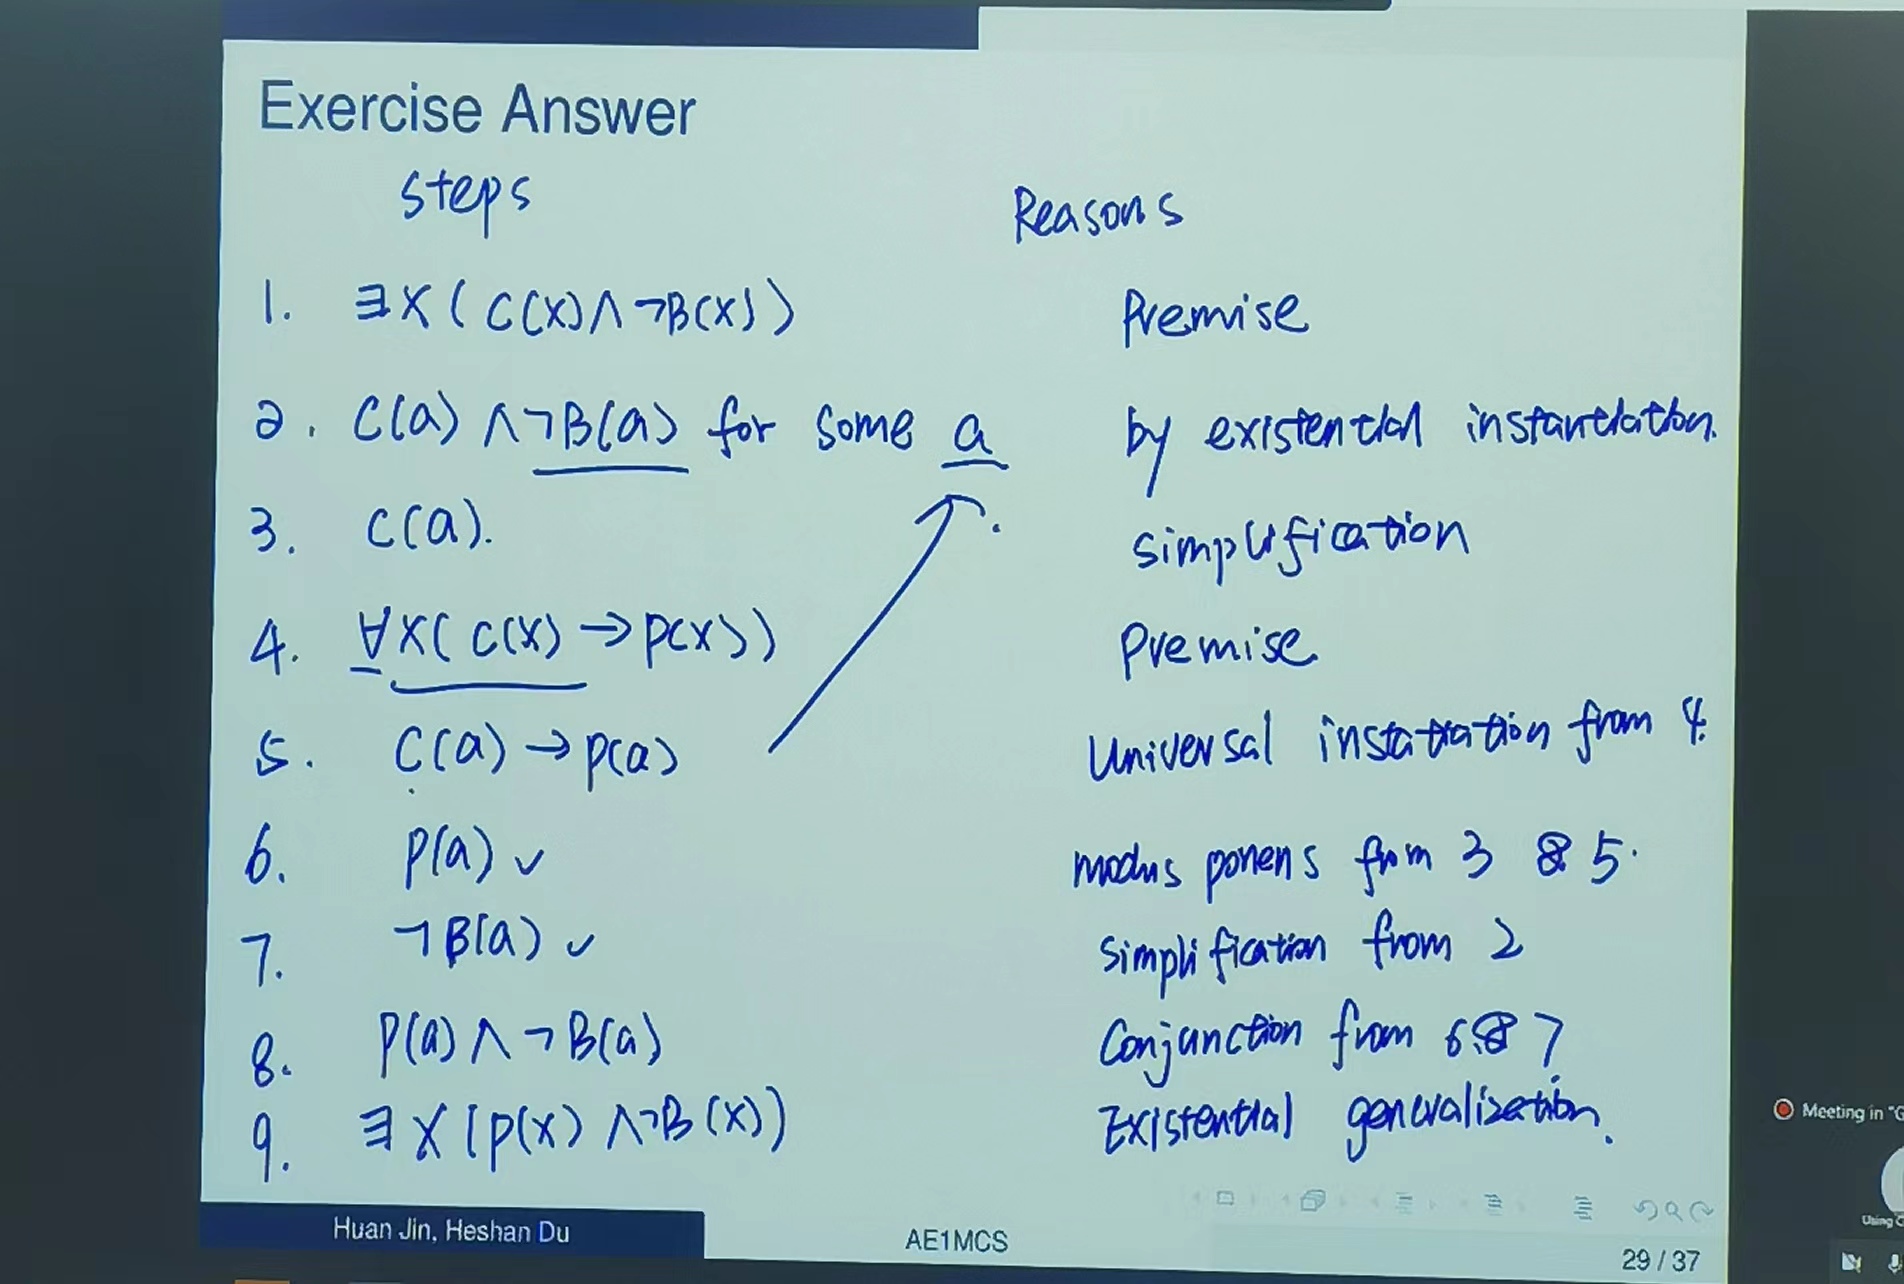 Exercise Answer
steps
Reasons
1. ∃x(C(x)∧¬B(x)) Premise
2. C(a)∧¬B(a) for some a by existential instantiation.
3. C(a). simplification
4. ∀x(C(x)→P(x)) Premise
5. C(a)→P(a) Universal instatiation from 4.
6. P(a) ✓ modus ponens from 3 & 5.
7. ¬B(a) ✓ Simplification from 2
8. P(a)∧¬B(a) Conjunction from 6 & 7
9. ∃x(P(x)∧¬B(x)) Existential generalization.
Meeting in "G
Using
Huan Jin, Heshan Du AE1MCS 29 / 37